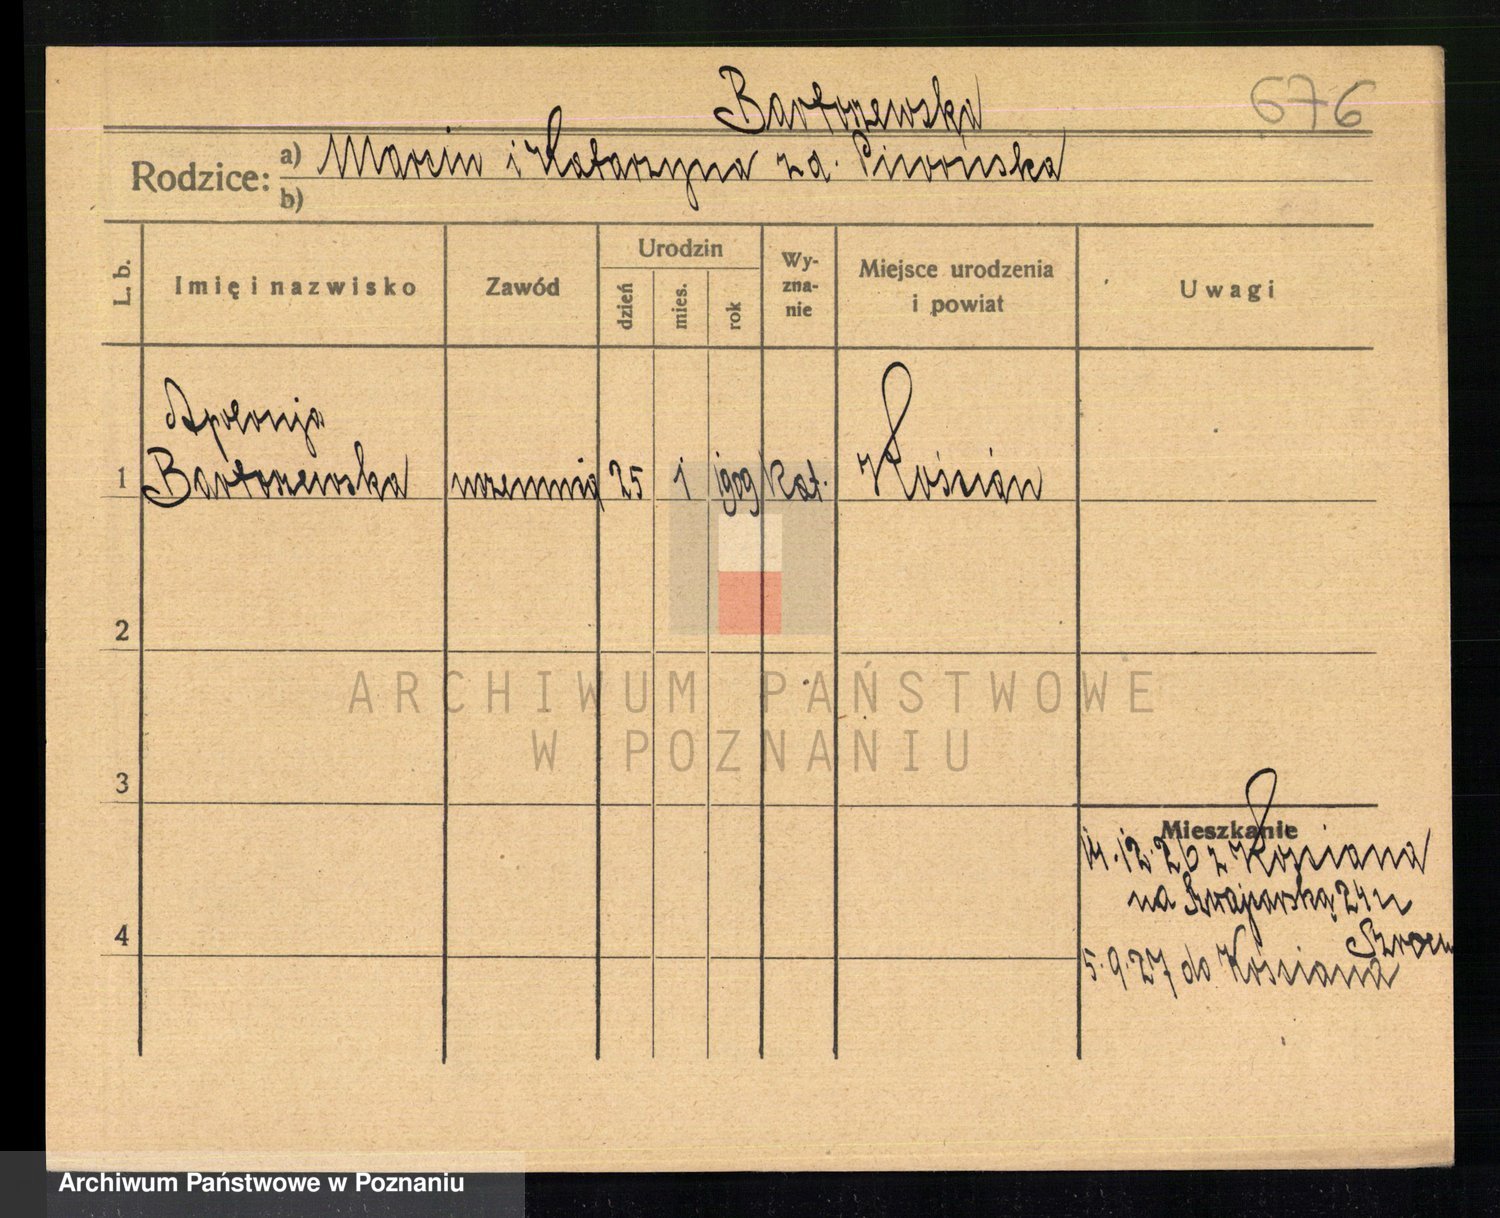 676
Bartoszewska
Rodzice: a) Marcin i Katarzyna zd. Piwońska
b)
L. b.
Imię i nazwisko
Zawód
Urodzin
dzień
mies.
rok
Wy-
zna-
nie
Miejsce urodzenia
i powiat
Uwagi
Apolonja
1 Bartoszewska uczennica 25 1 1909 Kat. Kościan
2
ARCHIWUM PAŃSTWOWE
W POZNANIU
3
Mieszkanie
14.12.26 z Kościana
na
4
5.9.27 do Kościana
Archiwum Państwowe w Poznaniu